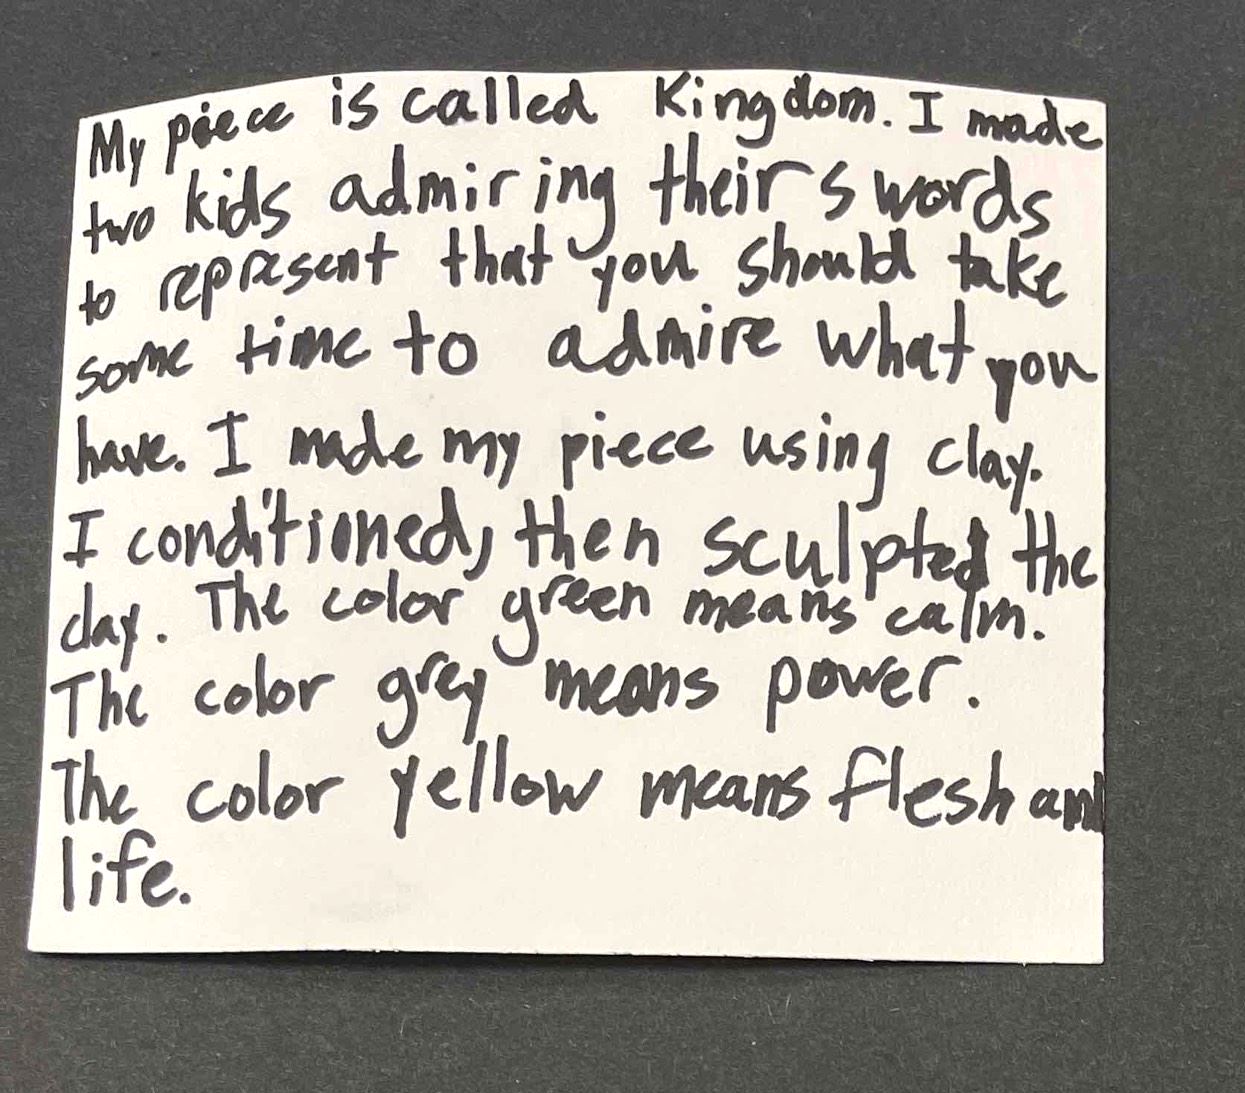 My piece is called Kingdom. I made
two kids admiring their swords
to represent that you should take
some time to admire what you
have. I made my piece using clay.
I conditioned, then sculpted the
clay. The color green means calm.
The color grey means power.
The color yellow means flesh and
life.